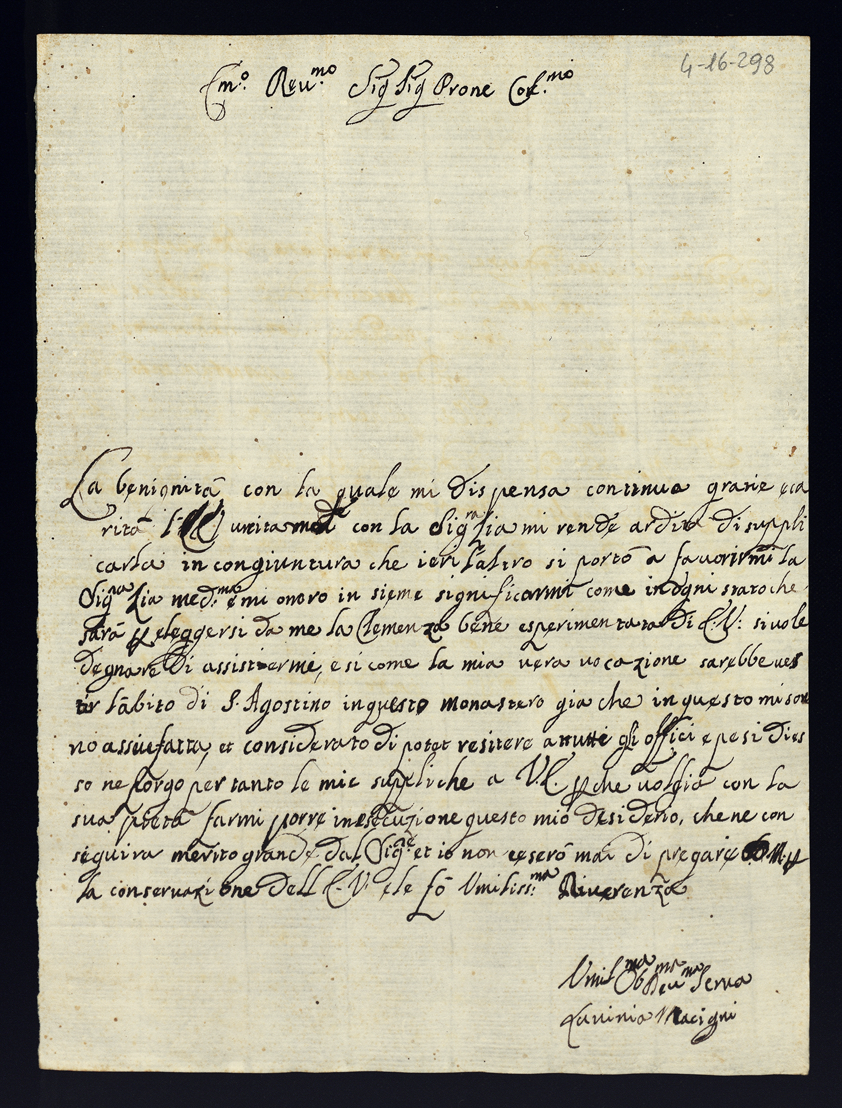 4-16-298
Em.o Reu.mo Sig Sig Prone Col.mo
La benignità con la quale mi dispensa continua grazie e ca
rità unita con la Sig.ra Zia mi rende ardita di suppli
carla in congiuntura che ieri l'altro si portò a favorirmi la
Sig.ra Zia med.ma e mi onoro in sieme significarmi come in ogni stato che
sarà p eleggersi da me la Clemenza bene esperimentata di E.V: si vole
degnare di assistermi, e si come la mia vera uocazione sarebbe ues
tir l'abito di S. Agostino in questo monastero gia che in questo mi so
no assuefatta, et considerato di potet resitere a tutti gli offici e pesi di es
so ne porgo per tanto le mie suppliche a V.E. p che uoglia con la
sua pietà farmi porre in esecuzione questo mio desiderio, che ne con
seguira merito grande dal Sig.re et io non cesserò mai di pregare p
la conservazione dell E.V. e le fò Umiliss.ma Riverenza
Umil.ma Ob.ma Reu.ma Serua
Lauinia Macigni